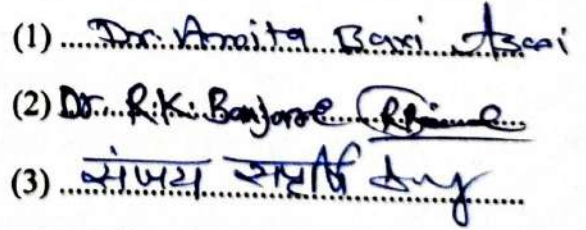 (1) Dr. Amita Bari
(2) Dr. R.K. Banjare
(3) संजय सप्तर्षि